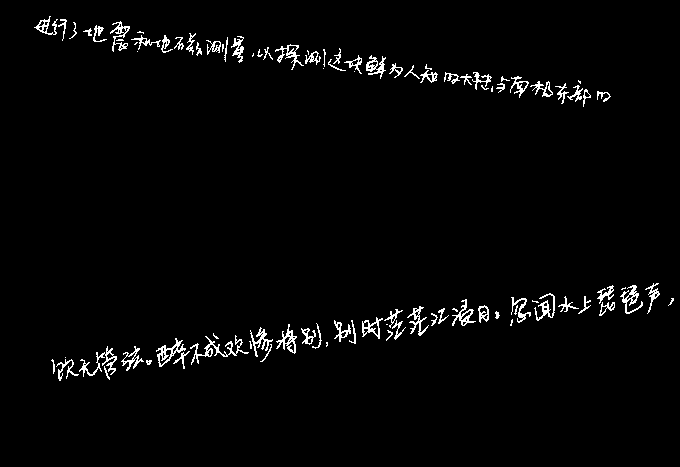 进行了地震和地磁测量，以探测这块鲜为人知的大陆与南极东部的
饮无管弦。醉不成欢惨将别，别时茫茫江浸月。忽闻水上琵琶声，